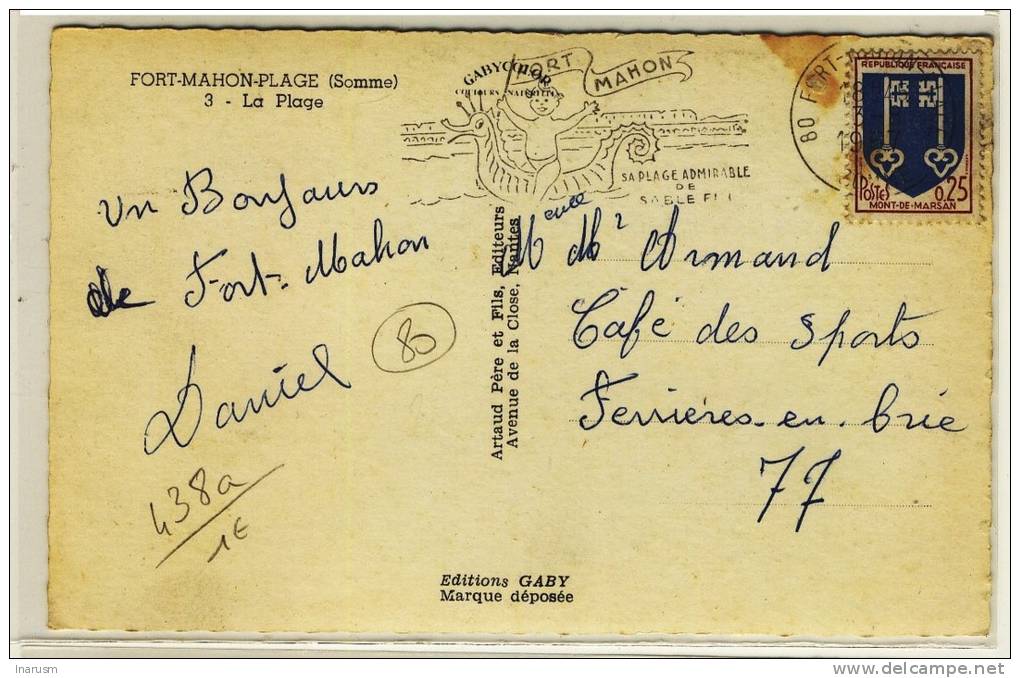 FORT-MAHON-PLAGE (Somme)
3 - La Plage
Un Bonjours
de Fort-Mahon
Daniel
80
438a
1€
GABYCOLOR
COULEURS NATURELLES
FORT MAHON
SA PLAGE ADMIRABLE
DE
SABLE FIN
80 FORT-
REPUBLIQUE FRANÇAISE
POSTES 0,25
MONT-DE-MARSAN
Artaud Père et Fils, Editeurs
Avenue de la Close, Nantes
M Mr Armand
Café des Sports
Ferrières-en-Brie
77
Editions GABY
Marque déposée
Inarusm
delcampe.net